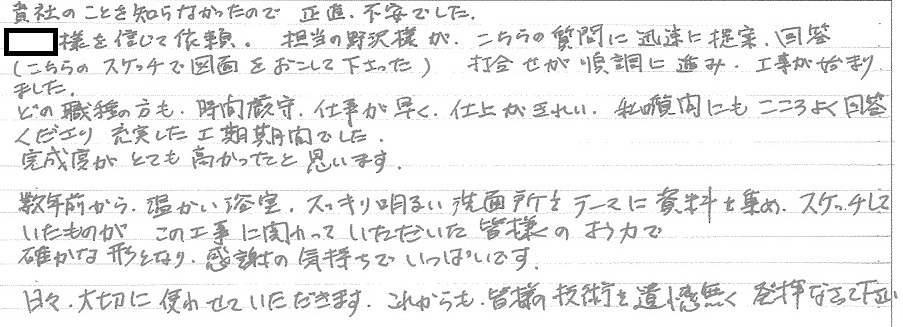 貴社のことを知らなかったので 正直、不安でした。
様を信じて依頼。 担当の野沢様が、こちらの質問に迅速に提案、回答
(こちらのスケッチで図面をおこして下さった) 打合せが順調に進み、工事が始まり
ました。
どの職種の方も、時間厳守、仕事が早く、仕上がきれい、私の質問にもこころよく回答
くださり 充実した工期期間でした。
完成度がとても高かったと思います。
数年前から、温かい浴室、スッキリ明るい洗面所をテーマに資料を集め、スケッチして
いたものが この工事に関わっていただいた皆様のお力で
確かな形となり、感謝の気持ちでいっぱいです。
日々、大切に使わせていただきます。これからも、皆様の技術を遺憾無く発揮なさって下さい